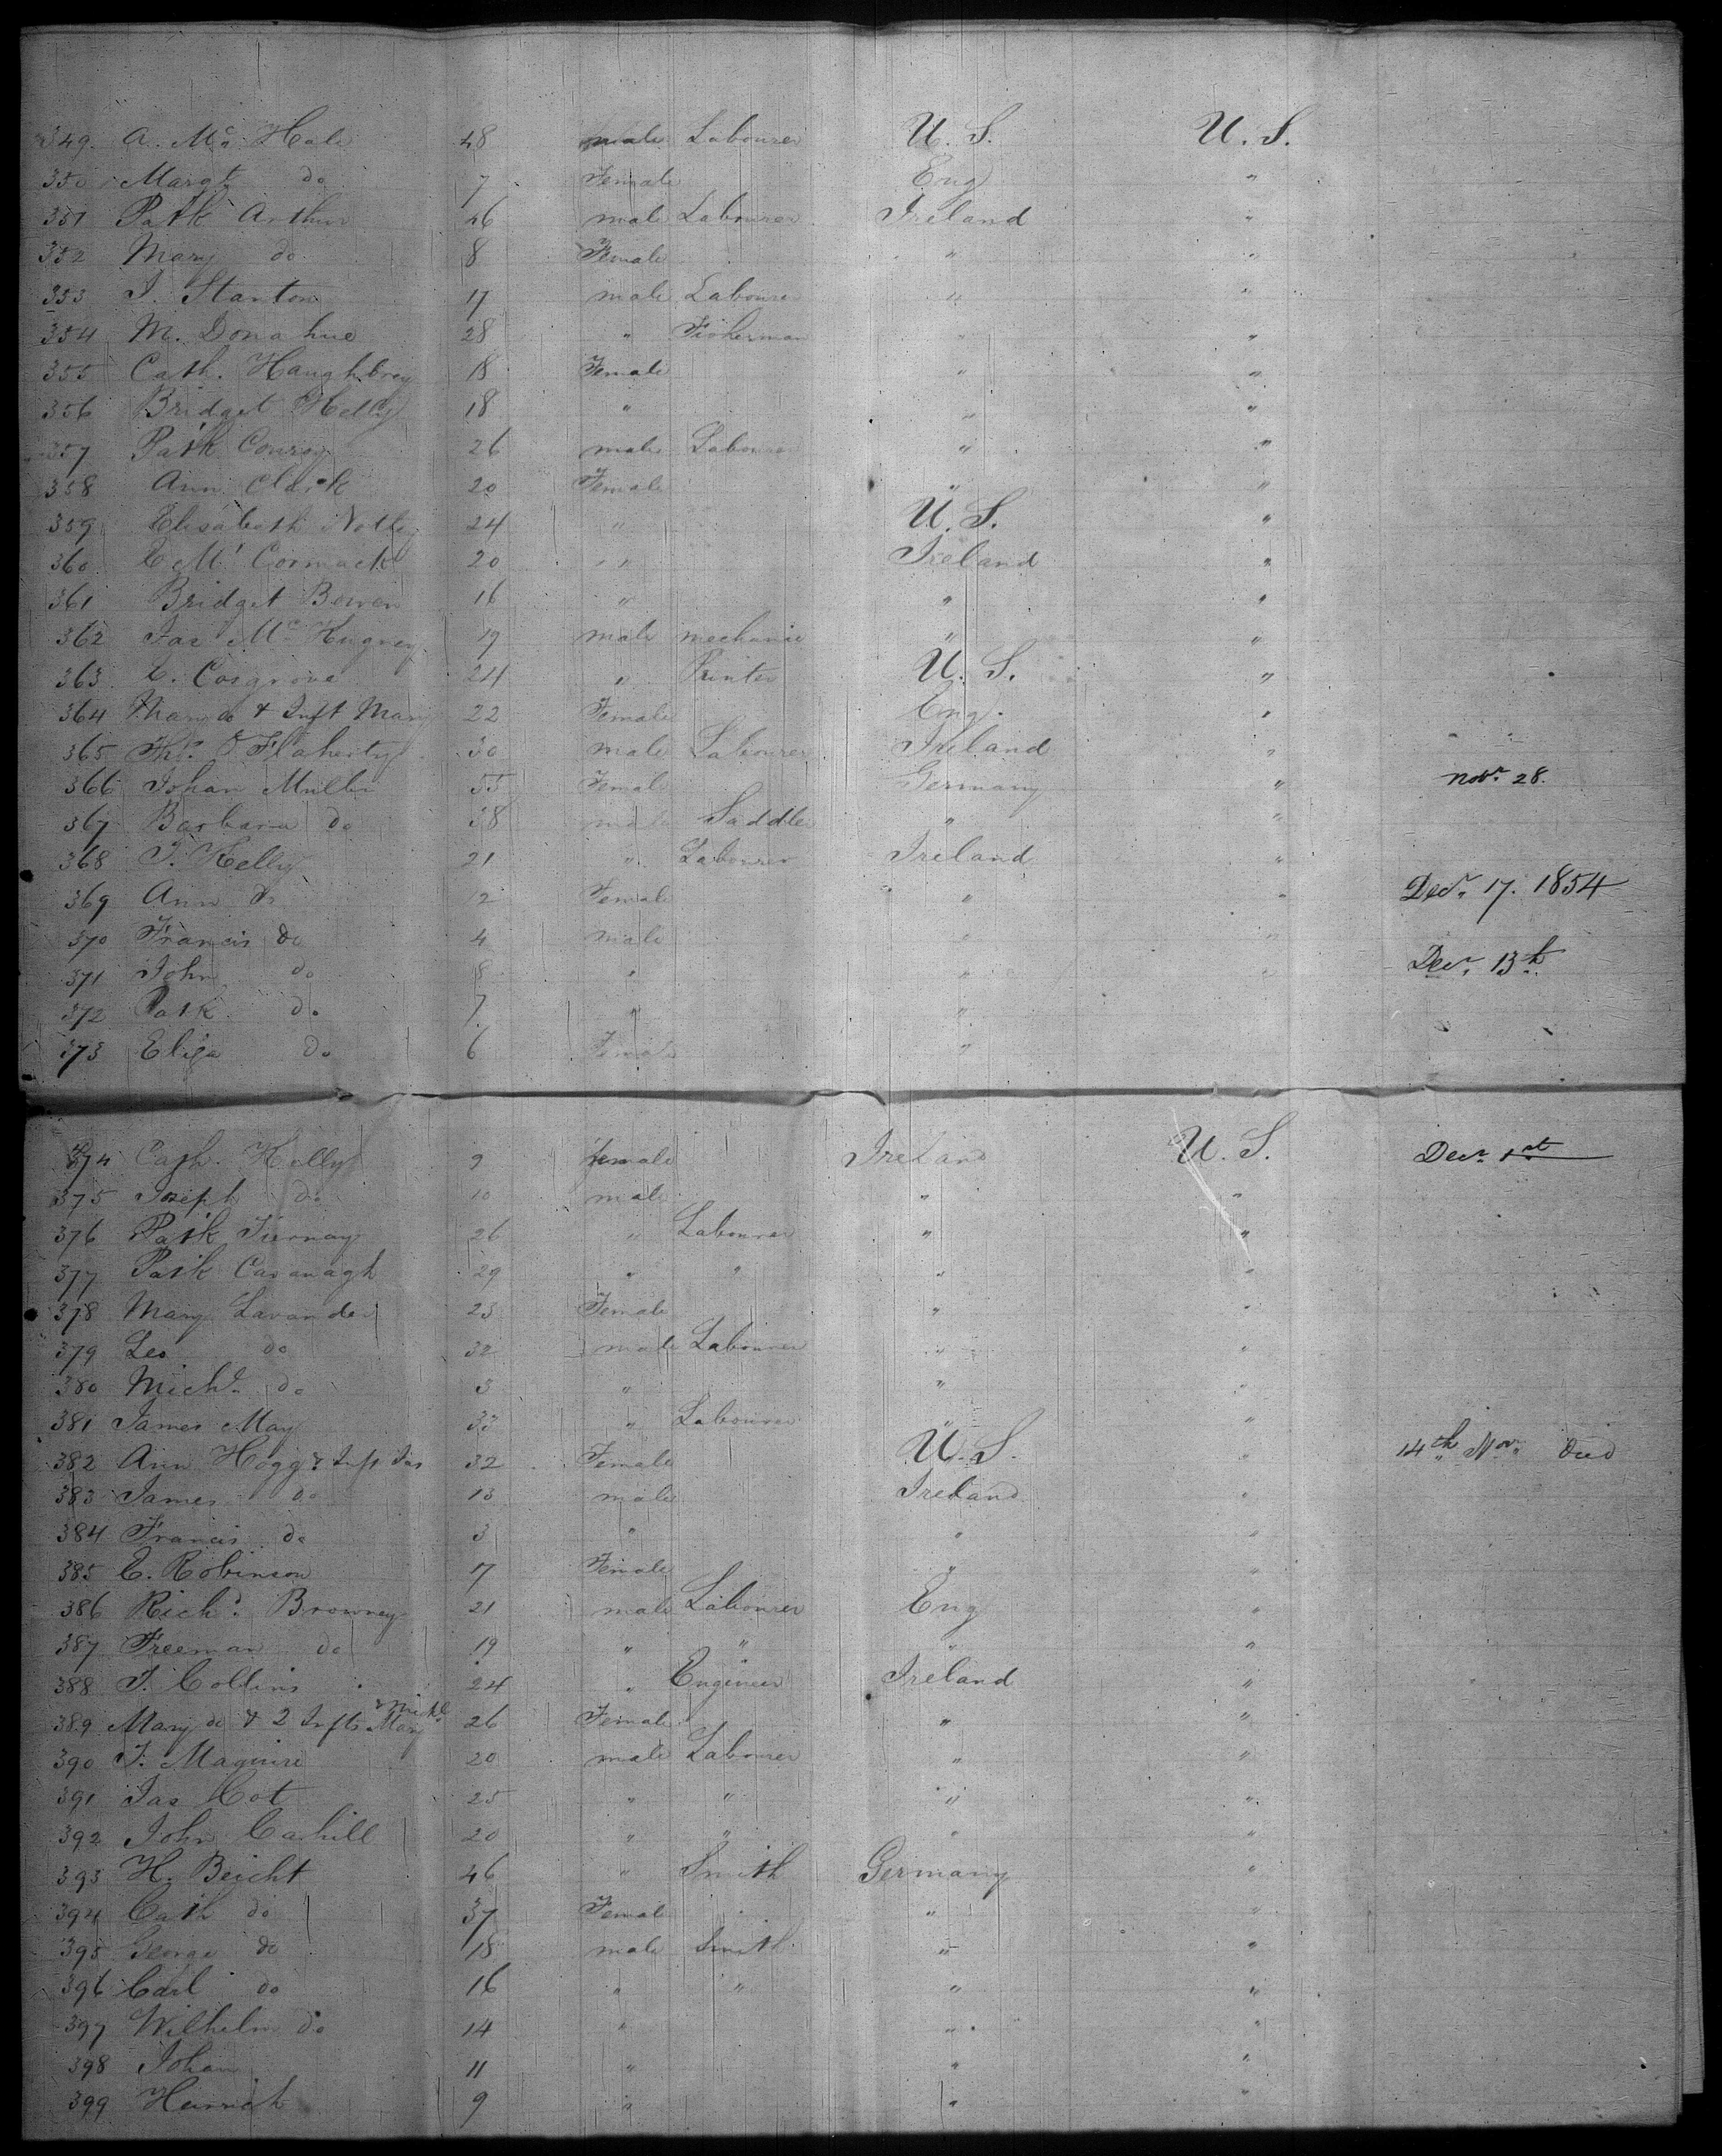 349. A. Mc Hale 48 male Labourer U. S. U. S.
350 Margt do 7 Female Eng "
351 Patk Arthur 26 male Labourer Ireland "
352 Mary do 8 Female " "
353 J. Stanton 17 male Labourer " "
354 M. Donahue 28 " Fisherman " "
355 Cath. Haughbrey 18 Female " "
356 Bridget Kelly 18 " " "
357 Patk Conroy 26 male Labourer " "
358 Ann Clark 20 Female " "
359 Elisabeth Notley 24 " U. S. "
360 C McCormack 20 " Ireland "
361 Bridget Bowen 16 " " "
362 Jas Mc Hugney 19 male mechanic " "
363 C. Cosgrove 24 " Printer U. S. "
364 Mary do & Inft Mary 22 Female Eng. "
365 Ths. O'Flaherty 30 male Labourer Ireland "
366 Johan Muller 55 Female Germany " Novr 28.
367 Barbara do 38 male Saddler " "
368 J. Kelly 21 " Labourer Ireland "
369 Ann do 2 Female " " Decr. 17. 1854
370 Francis do 4 male " "
371 John do 8 " " " Decr. 13th
372 Patk do 7 " "
373 Eliza do 6 Female "
374 Cath. Kelly 9 female Ireland U. S. Decr 1st
375 Joseph do 10 male " "
376 Patk Tiernay 26 " Labourer " "
377 Patk Cavanagh 29 " " " "
378 Mary Lavander 23 Female " "
379 Leo do 32 male Labourer " "
380 Michl. do 3 " " "
381 James May 33 " Labourer " "
382 Ann Hogg & Inft Jas 32 Female U. S. " 14th Nov. Died
383 James do 13 male Ireland "
384 Francis do 3 " " "
385 C. Robinson 17 Female " "
386 Richd. Browney 21 male Labourer Eng "
387 Freeman do 19 " " " "
388 J. Collins 24 " Engineer Ireland "
389 Mary do & 2 Infts Mary & Michl 26 Female " "
390 J. Maguire 20 male Labourer " "
391 Jas Cot 25 " " " "
392 John Cahill 20 " " " "
393 H. Beicht 46 " Smith Germany "
394 Cath do 37 Female " "
395 George do 18 male Smith " "
396 Carl do 16 " " " "
397 Wilhelm do 14 " " "
398 Johan 11 " " "
399 Heinrich 9 " " "